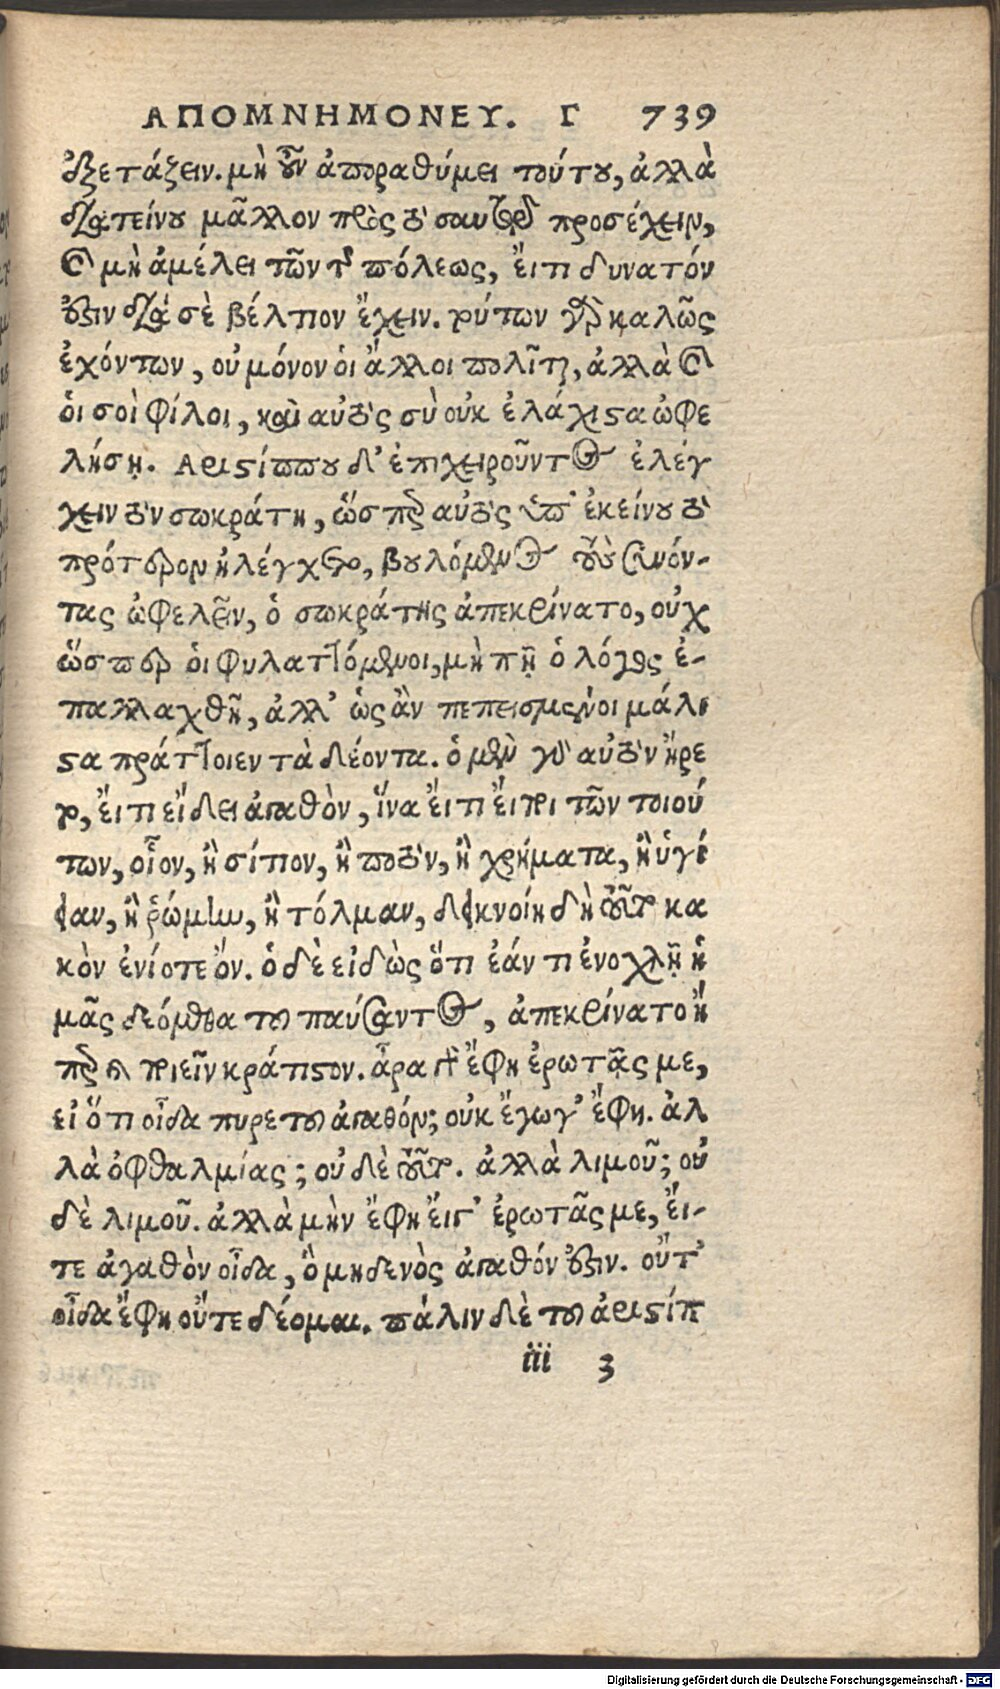 ΑΠΟΜΝΗΜΟΝΕΥ. Γ 739
ἐξετάζειν. μὴ οὖν ἀπορραθύμει τούτου, ἀλλὰ
διατείνου μᾶλλον πρὸς τὸ σαυτῷ προσέχειν,
καὶ μὴ ἀμέλει τῶν τῆς πόλεως, εἴ τι δυνατόν
ἐστιν διὰ σὲ βέλτιον ἔχειν. τούτων γὰρ καλῶς
ἐχόντων, οὐ μόνον οἱ ἄλλοι πολῖται, ἀλλὰ καὶ
οἱ σοὶ φίλοι, καὶ αὐτὸς σὺ οὐκ ἐλάχιστα ὠφε
λήσῃ. Αριστίππου δ' ἐπιχειροῦντος ἐλέγ
χειν τὸν σωκράτη, ὥσπερ αὐτὸς ὑπ' ἐκείνου τὸ
πρότερον ἠλέγχετο, βουλόμενος τοὺς συνόν-
τας ὠφελεῖν, ὁ σωκράτης ἀπεκρίνατο, οὐχ
ὥσπερ οἱ φυλαττόμενοι, μὴ πῇ ὁ λόγος ἐ-
παλλαχθῇ, ἀλλ' ὡς ἂν πεπεισμένοι μάλι
στα πράττοιεν τὰ δέοντα. ὁ μὲν γὰρ αὐτὸν ἤρε
το, εἴ τι εἰδείη ἀγαθὸν, ἵνα εἴ τι εἴποι τῶν τοιού
των, οἷον, ἢ σίτιον, ἢ ποτὸν, ἢ χρήματα, ἢ ὑγί
ειαν, ἢ ῥώμην, ἢ τόλμαν, δεικνοίη δὴ τοῦτο κα
κὸν ἐνίοτε ὄν. ὁ δὲ εἰδὼς ὅτι ἐάν τι ἐνοχλῇ ἡ
μᾶς δεόμεθα τοῦ παύσαντος, ἀπεκρίνατο ᾗ
περ καὶ ποιεῖν κράτιστον. ἆρα γε ἔφη ἐρωτᾷς με,
εἰ ὅτι οἶδα πυρετοῦ ἀγαθόν; οὐκ ἔγωγ' ἔφη. ἀλ
λὰ ὀφθαλμίας; οὐδὲ τοῦτο. ἀλλὰ λιμοῦ; οὐ
δὲ λιμοῦ. ἀλλὰ μὴν ἔφη εἴγ' ἐρωτᾷς με, εἴ-
τε ἀγαθὸν οἶδα, ὃ μηδενὸς ἀγαθόν ἐστιν. οὔτ'
οἶδα ἔφη οὔτε δέομαι. πάλιν δὲ τοῦ ἀριστίπ
iii 3
Digitalisierung gefördert durch die Deutsche Forschungsgemeinschaft - DFG